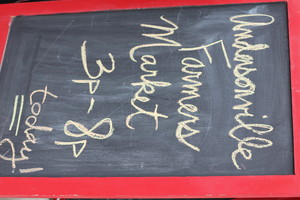 Andersonville
Farmers
Market
3p - 8p
today!